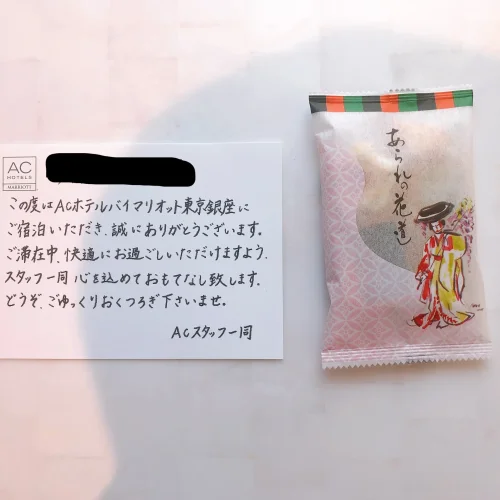 AC
HOTELS
MARRIOTT
この度はACホテルバイマリオット東京銀座に
ご宿泊いただき、誠にありがとうございます。
ご滞在中、快適にお過ごしいただけますよう、
スタッフ一同心を込めておもてなし致します。
どうぞ、ごゆっくりおくつろぎ下さいませ。
ACスタッフ一同
あられの花道